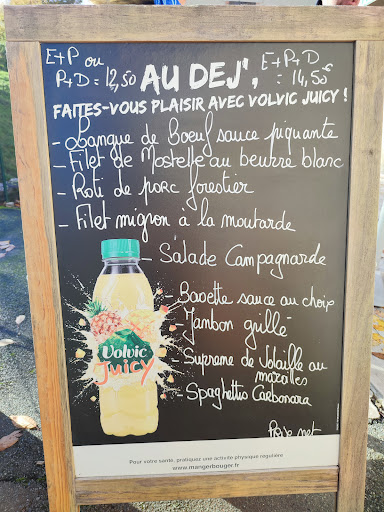 E+P ou
P+D = 12,50
E+P+D
= 14,50€
AU DEJ',
FAITES-VOUS PLAISIR AVEC VOLVIC JUICY !
- Langue de Boeuf sauce piquante
- Filet de Mostelle au beurre blanc
- Roti de porc forestier
- Filet mignon à la moutarde
- Salade Campagnarde
- Bavette sauce au choix
- Jambon grillé
- Supreme de Volaille au
maroilles
- Spaghettis Carbonara
Volvic
JUICY
Prix net
Pour votre santé, pratiquez une activité physique régulière
www.mangerbouger.fr